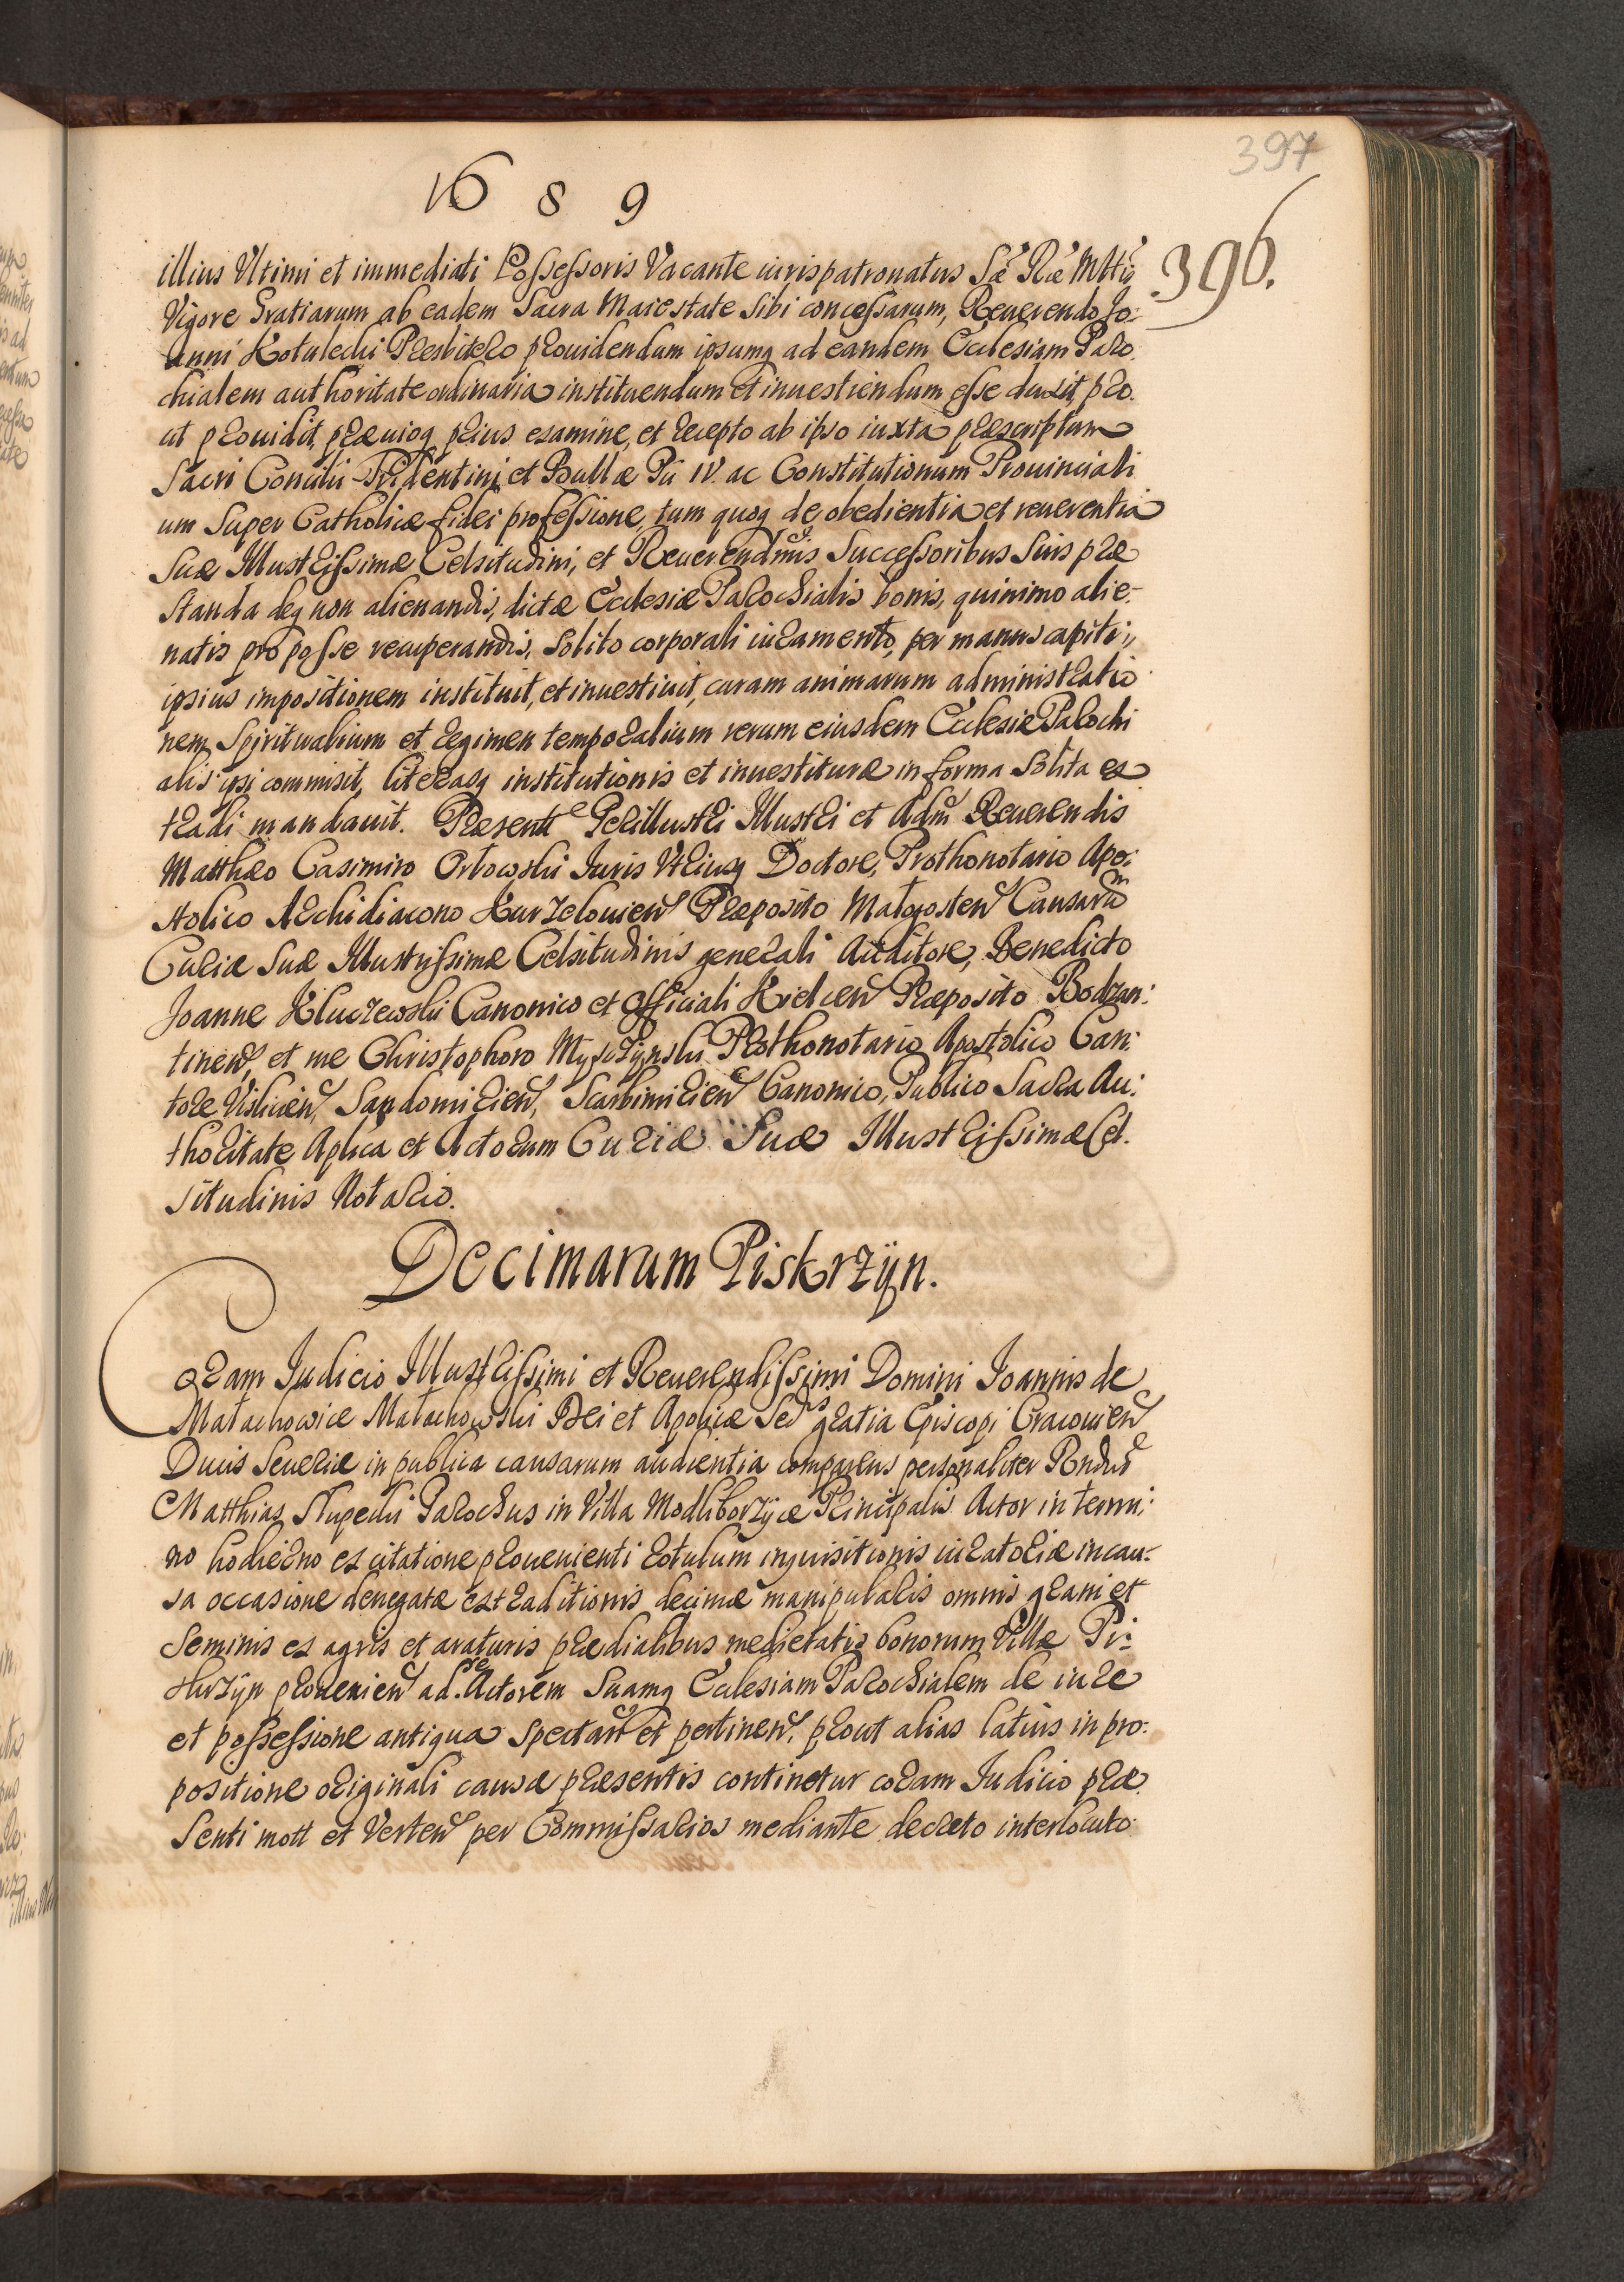 397
1689
396.
illius Ultimi et immediati Possessoris Vacante iurispatronatus Sæ Ræ Mttis
Vigore Gratiarum ab eadem Sacra Maiestate sibi concessarum, Reuerendo Jo:
anni Kotulecki Presbitero prouidendum ipsumq ad eandem Ecclesiam Paro
chialem authoritate ordinaria instituendum et inuestiendum esse duxit, pro
ut prouidit, præuioq prius examine, et recepto ab ipso iuxta præscriptum
Sacri Concilii Tridentini et Bullæ Pii IV. ac Constitutionum Prouinciali
um super Catholicæ fidei professione, tum quoq de obedientia et reuerentia
Suæ Illustrissimæ Celsitudini, et Reuerendmis Successoribus suis præ
standa deq non alienandis, dictæ Ecclesiæ Parochialis bonis, quinimo alie-
natis pro posse recuperandis, solito corporali iuramento, per manus capiti
ipsius impositionem instituit, et inuestiuit, curam animarum administratio
nem Spiritualium et regimen temporalium rerum eiusdem Ecclesiæ Parochi
alis ipsi commisit, literasq institutionis et inuestituræ in forma solita ex
tradi mandauit. Præsente Perillustri Illustri et Adm Reuerendis
Matthæo Casimiro Orłowski Iuris Utriusq Doctore, Prothonotario Apo:
stolico Archidiacono Kurzelouien Præposito Małogosten Causarum
Curiæ Suæ Illustrissimæ Celsitudinis generali Auditore, Benedicto
Joanne Kluczewski Canonico et Officiali Kielcen Præposito Bodzan:
tinen, et me Christophoro Myszynski Prothonotario Apostolico Can:
tore Vislicien, Sandomirien, Scarbimirien Canonico, Publico Sacra Au:
thoritate Aplica et Actorum Curiæ Suæ Illustrissimæ Cel
situdinis Notario.
Decimarum Piskrzÿn.
Coram Judicio Illustrissimi et Reuerendissimi Domini Joannis de
Małachowice Małachowski Dei et Aplicæ Sedis gratia Episcopi Cracouien
Ducis Seueriæ in publica causarum audientia comparens personaliter Rndus
Matthias Słupecki Parochus in Villa Modliborzÿce Principalis Actor in termi:
no hodierno ex citatione prouenienti rotulum inquisitionis iuratoriæ in cau:
sa occasione denegatæ extraditionis decimæ manipularis omnis grani et
seminis ex agris et araturis prædialibus medietatis bonorum Villæ Pi:
skrzÿn prouenien ad præ. Actorem Suamq Ecclesiam Parochialem de iure
et possessione antiqua spectan et pertinen, prout alias latius in pro:
positione originali causæ præsentis continetur coram Iudicio præ
senti mott et Verten per Commissarios mediante decreto interlocuto